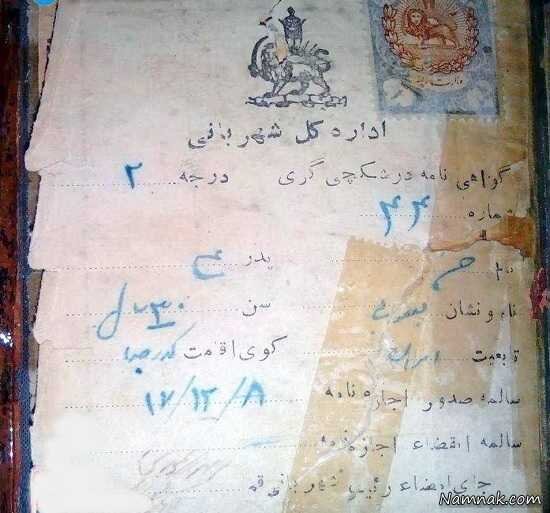 اداره کل شهربانی
گواهی نامه درشکچی گری درجه ۲
شماره ۴۴
نام پدر
نام و نشان سن ۳۰
تابعیت ایران کوی اقامت
سالمه صدور اجازه نامه ۱۷/۱۲/۸
سالمه انقضاء اجازه نامه
جای امضاء رئیس شهربانی قم
Namnak.com